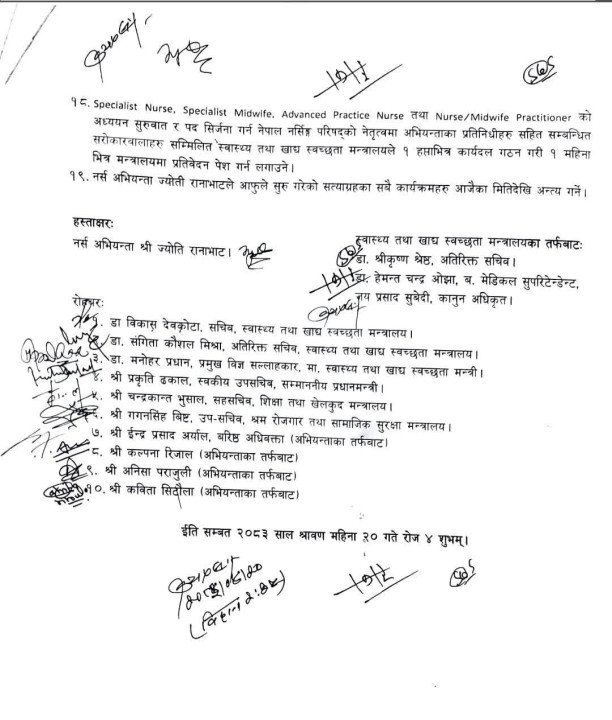 १८. Specialist Nurse, Specialist Midwife, Advanced Practice Nurse तथा Nurse/Midwife Practitioner को
अध्ययन सुरुवात र पद सिर्जना गर्न नेपाल नर्सिङ्ग परिषद्को नेतृत्वमा अभियन्ताका प्रतिनिधीहरु सहित सम्बन्धित
सरोकारवालाहरु सम्मिलित स्वास्थ्य तथा खाद्य स्वच्छता मन्त्रालयले १ हप्ताभित्र कार्यदल गठन गरी १ महिना
भित्र मन्त्रालयमा प्रतिवेदन पेश गर्न लगाउने।
१९. नर्स अभियन्ता ज्योती रानाभाटले आफुले सुरु गरेको सत्याग्रहका सबै कार्यक्रमहरु आजैका मितिदेखि अन्त्य गर्ने।
हस्ताक्षरः
नर्स अभियन्ता श्री ज्योति रानाभाट।
स्वास्थ्य तथा खाद्य स्वच्छता मन्त्रालयका तर्फबाटः
डा. श्रीकृष्ण श्रेष्ठ, अतिरिक्त सचिव।
डा. हेमन्त चन्द्र ओझा, ब. मेडिकल सुपरिटेन्डेन्ट,
जय प्रसाद सुबेदी, कानुन अधिकृत।
रोहबरः
१. डा विकास देवकोटा, सचिव, स्वास्थ्य तथा खाद्य स्वच्छता मन्त्रालय।
डा. संगिता कौशल मिश्रा, अतिरिक्त सचिव, स्वास्थ्य तथा खाद्य स्वच्छता मन्त्रालय।
३. डा. मनोहर प्रधान, प्रमुख विज्ञ सल्लाहकार, मा. स्वास्थ्य तथा खाद्य स्वच्छता मन्त्री।
४. श्री प्रकृति ढकाल, स्वकीय उपसचिव, सम्माननीय प्रधानमन्त्री।
५. श्री चन्द्रकान्त भुसाल, सहसचिव, शिक्षा तथा खेलकुद मन्त्रालय।
६. श्री गगनसिंह बिष्ट, उप-सचिव, श्रम रोजगार तथा सामाजिक सुरक्षा मन्त्रालय।
७. श्री ईन्द्र प्रसाद अर्याल, बरिष्ठ अधिवक्ता (अभियन्ताका तर्फबाट)
८. श्री कल्पना रिजाल (अभियन्ताका तर्फबाट)
९. श्री अनिसा पराजुली (अभियन्ताका तर्फबाट)
१०. श्री कविता सिटौला (अभियन्ताका तर्फबाट)
ईति सम्बत २०८३ साल श्रावण महिना २० गते रोज ४ शुभम्।